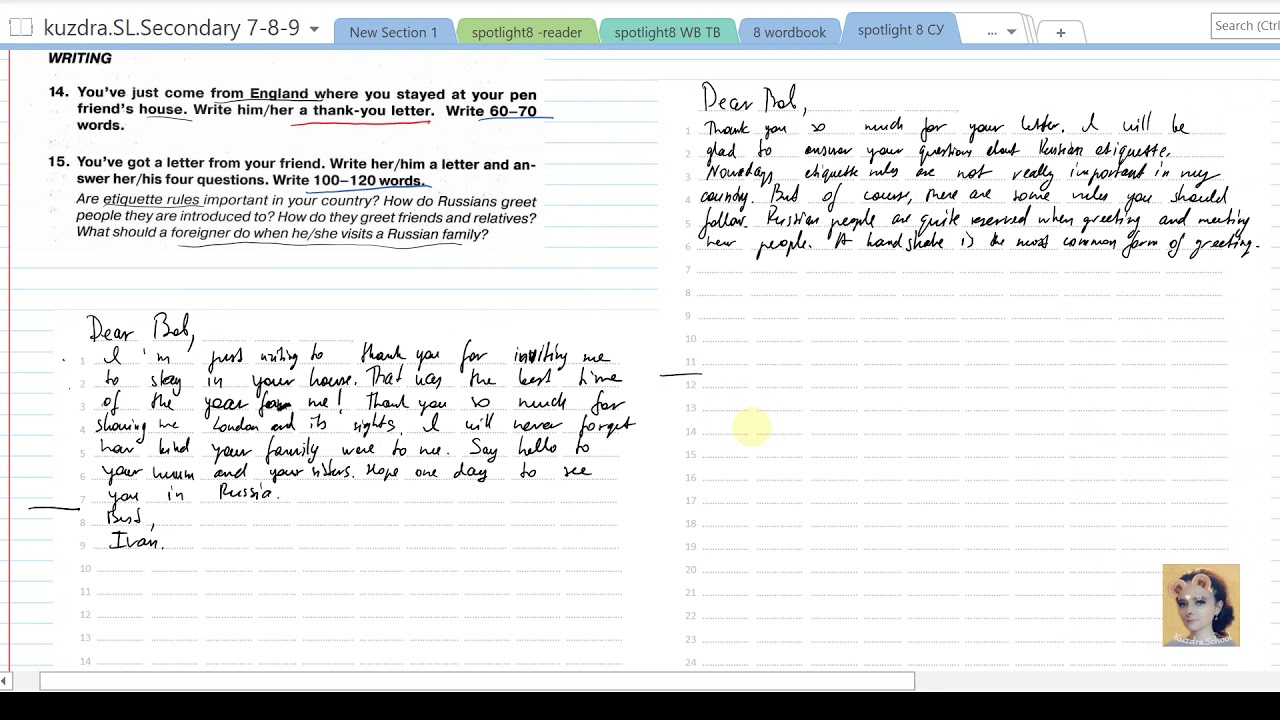 kuzdra.SL.Secondary 7-8-9
New Section 1
spotlight8 -reader
spotlight8 WB TB
8 wordbook
spotlight 8 СУ
...
+
Search (Ctrl
WRITING
14. You've just come from England where you stayed at your pen
friend's house. Write him/her a thank-you letter. Write 60–70
words.
15. You've got a letter from your friend. Write her/him a letter and an-
swer her/his four questions. Write 100–120 words.
Are etiquette rules important in your country? How do Russians greet
people they are introduced to? How do they greet friends and relatives?
What should a foreigner do when he/she visits a Russian family?
Dear Bob,
1 I'm just writing to thank you for inviting me
2 to stay in your house. That was the best time
3 of the year for me! Thank you so much for
4 showing me London and its sights. I will never forget
5 how kind your family were to me. Say hello to
6 your mum and your sisters. Hope one day to see
7 you in Russia.
8 Best,
9 Ivan.
10
11
12
13
14
Dear Bob,
1 Thank you so much for your letter. I will be
2 glad to answer your questions about Russian etiquette.
3 Nowadays etiquette rules are not really important in my
4 country. But of course, there are some rules you should
5 follow. Russian people are quite reserved when greeting and meeting
6 new people. A handshake is the most common form of greeting.
7
8
9
10
11
12
13
14
15
16
17
18
19
20
21
22
23
24
Kuzdra.School